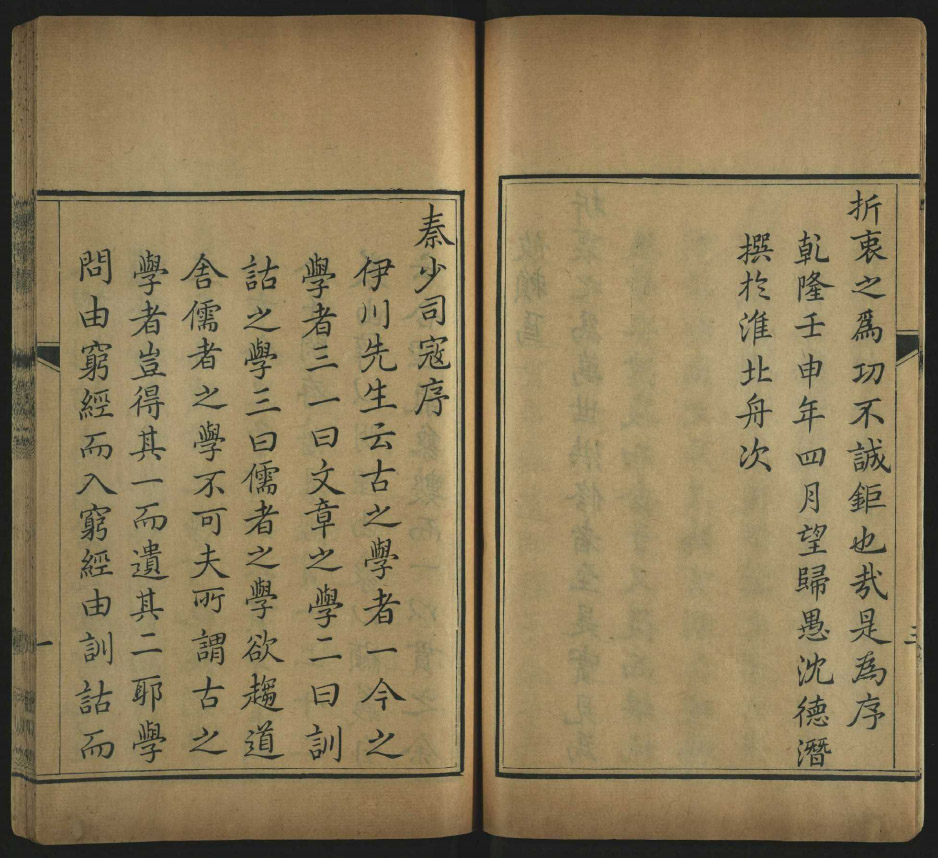 折衷之爲功不誠鉅也哉是為序
乾隆壬申年四月望歸愚沈德潛
撰於淮北舟次
三
秦少司寇序
伊川先生云古之學者一今之
學者三一曰文章之學二曰訓
詁之學三曰儒者之學欲趨道
舍儒者之學不可夫所謂古之
學者豈得其一而遺其二耶學
問由窮經而入窮經由訓詁而
一